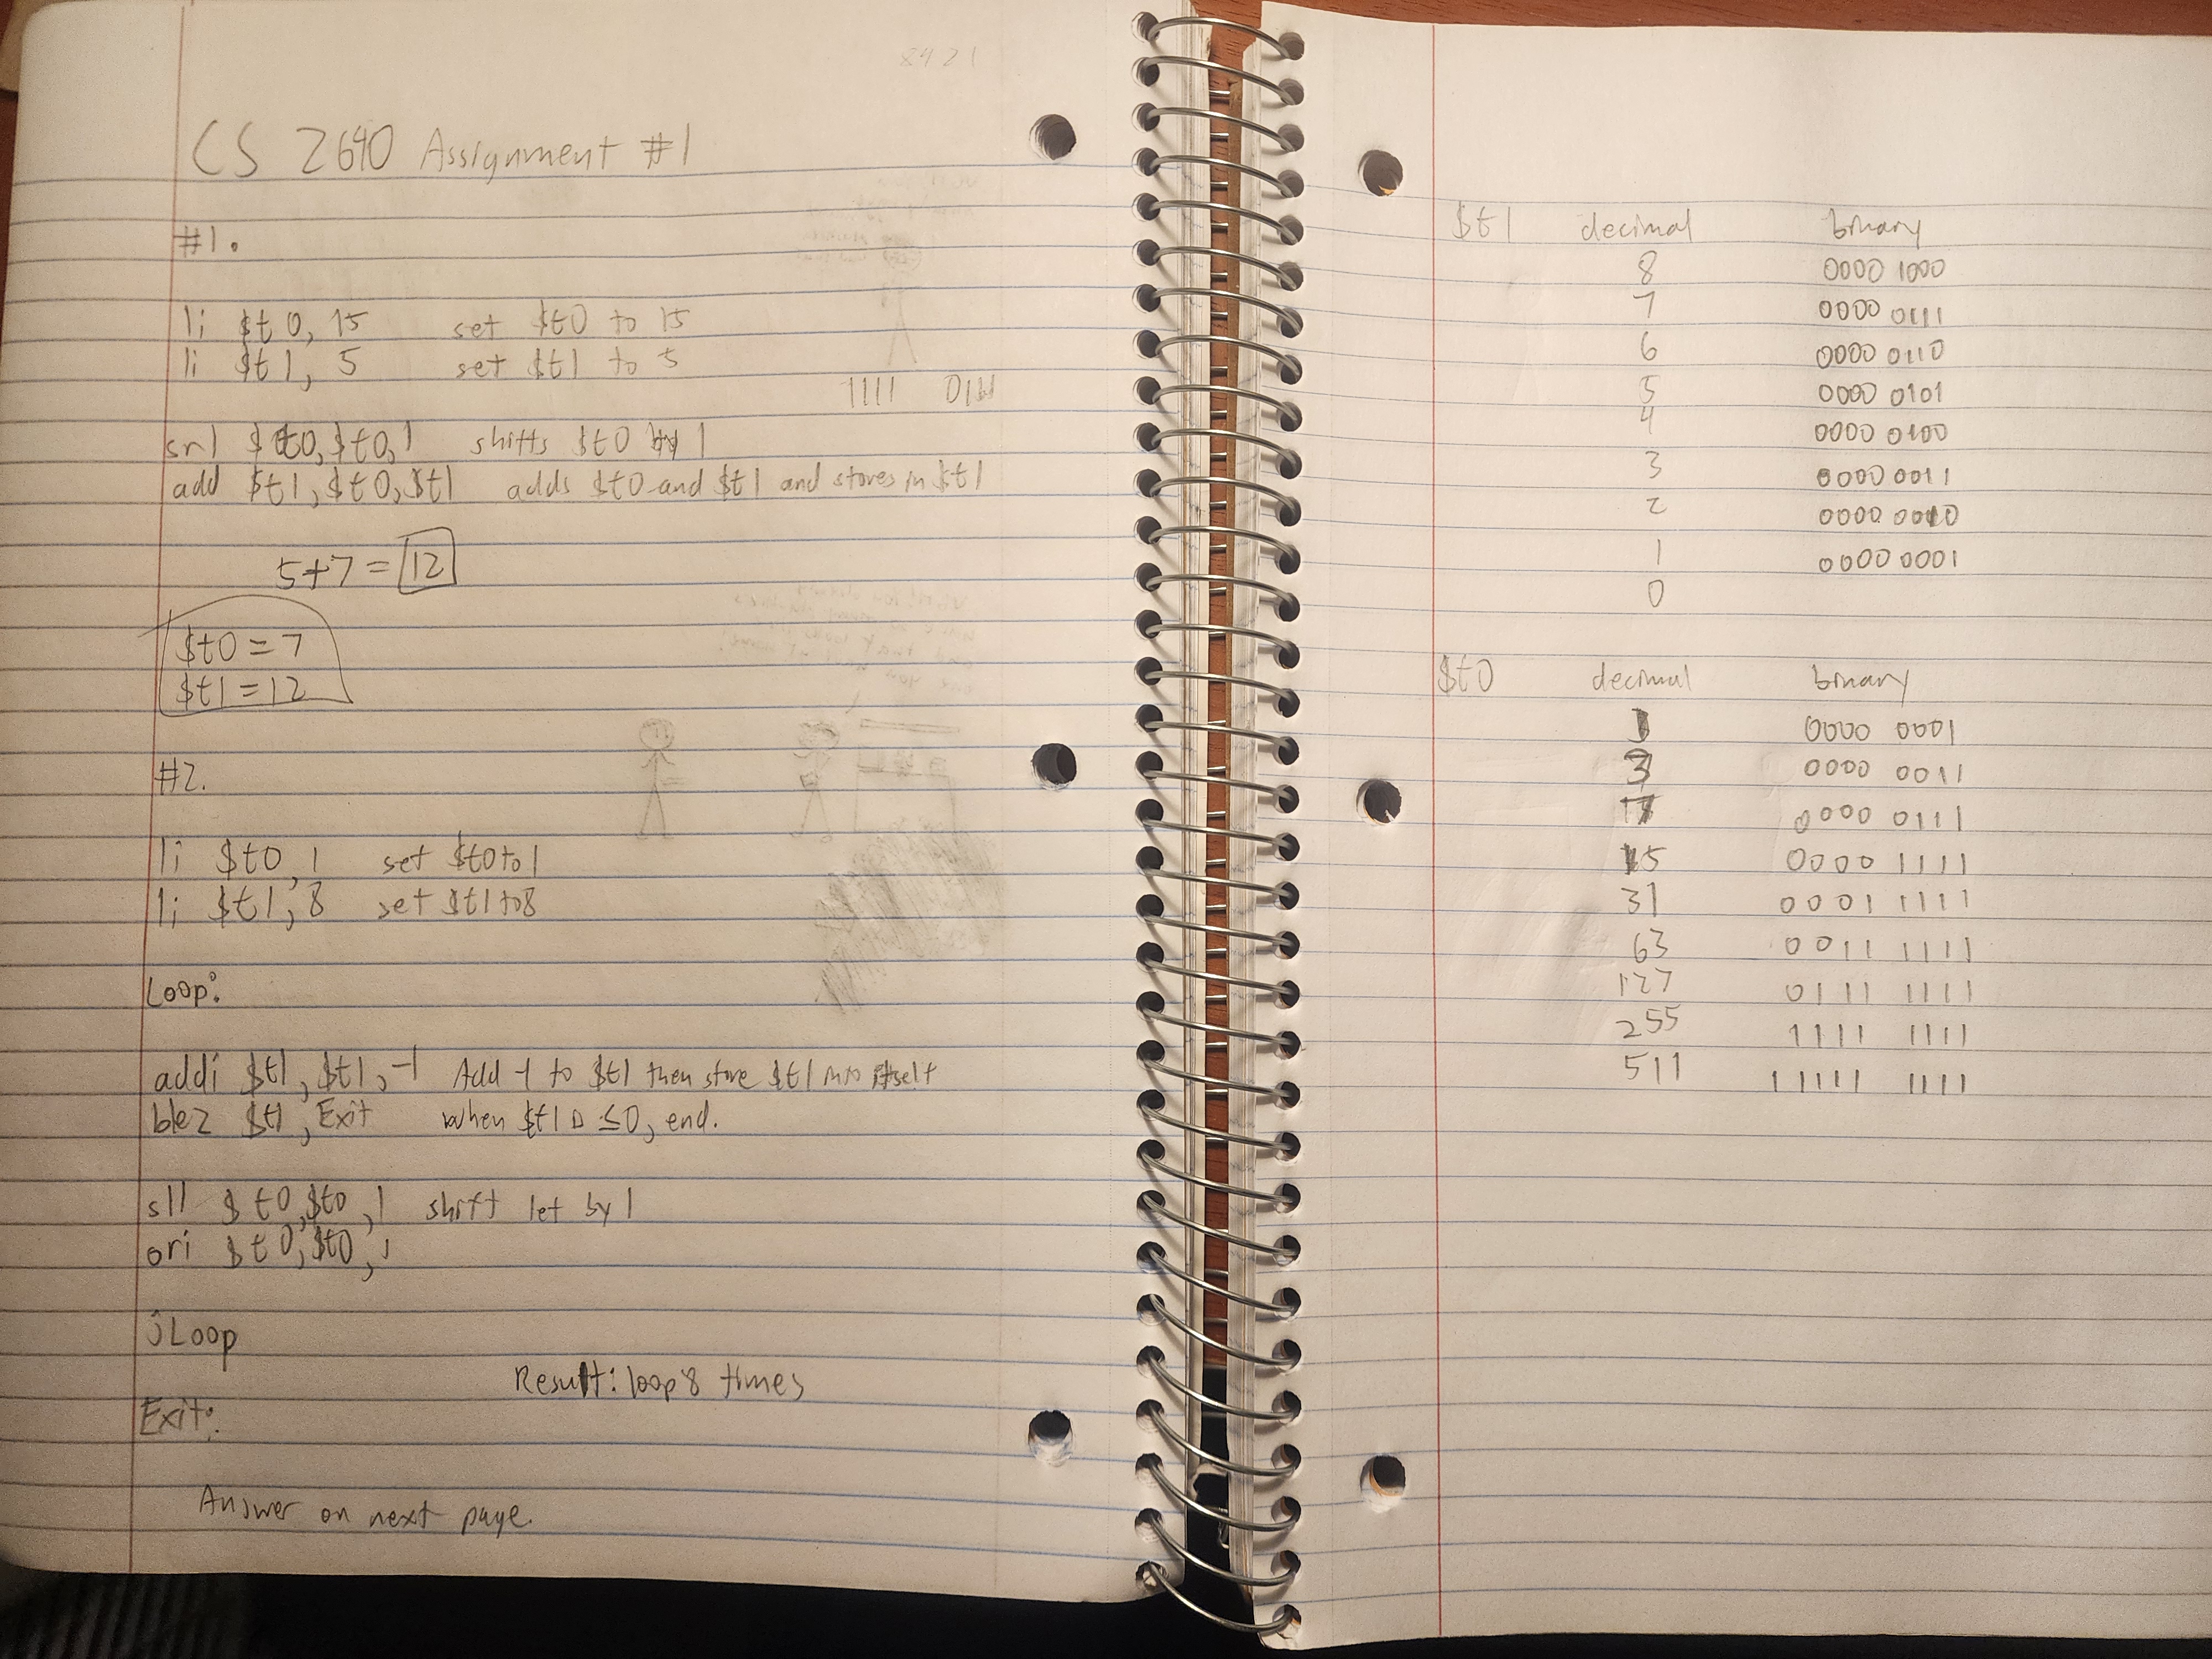 8421
CS 2640 Assignment #1
#1.
li $t0, 15 set $t0 to 15
li $t1, 5 set $t1 to 5
1111
srl $t0, $t0, 1 shifts $t0 by 1
add $t1, $t0, $t1 adds $t0 and $t1 and stores in $t1
5+7 = 12
$t0 = 7
$t1 = 12
#2.
li $t0, 1 set $t0 to 1
li $t1, 8 set $t1 to 8
Loop:
addi $t1, $t1, -1 Add -1 to $t1 then store $t1 into itself
blez $t1, Exit when $t1 ≤0, end.
sll $t0, $t0, 1 shift let by 1
ori $t0, $t0, 1
j Loop
Result: loop 8 times
Exit:
Answer on next page.
$t1 decimal binary
8 0000 1000
7 0000 0111
6 0000 0110
5 0000 0101
4 0000 0100
3 0000 0011
2 0000 0010
1 0000 0001
0
$t0 decimal binary
1 0000 0001
3 0000 0011
7 0000 0111
15 0000 1111
31 0001 1111
63 0011 1111
127 0111 1111
255 1111 1111
511 11111 1111